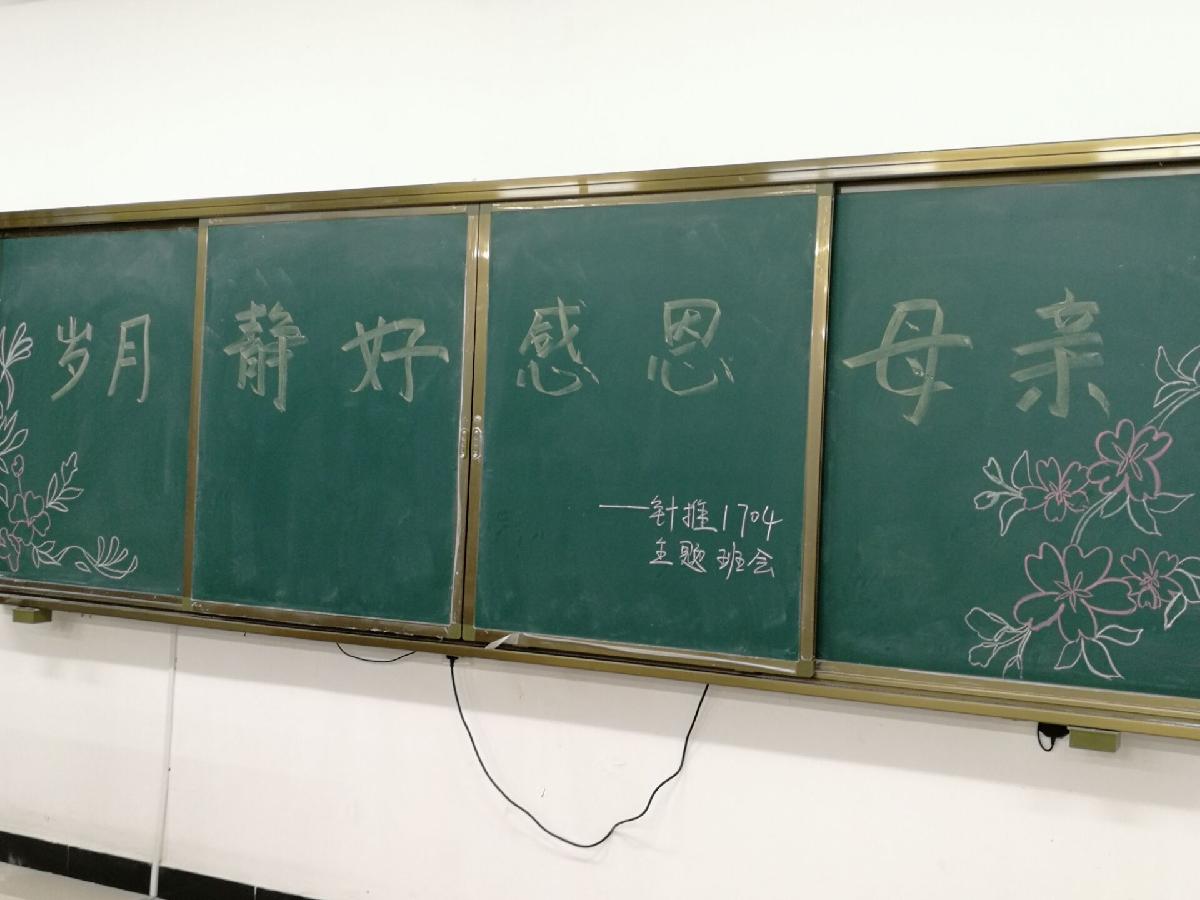 岁月静好感恩母亲
——针推1704
主题班会